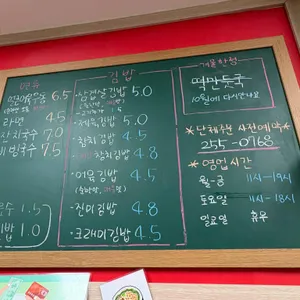 김밥
삼겹살김밥 5.0
제육김밥 5.0
참치김밥 4.5
참치김밥 4.8
어묵김밥 4.5
진미김밥 4.8
크래미김밥 4.5
6.5
라면 4.5
잔치국수 7.0
비빔국수 7.5
1.5
1.0
겨울한정
떡만둣국
10월에 다시만나요
단체주문 사전예약
255-0768
영업시간
월~금 11시~19시
토요일 11시~18시
일요일 휴무